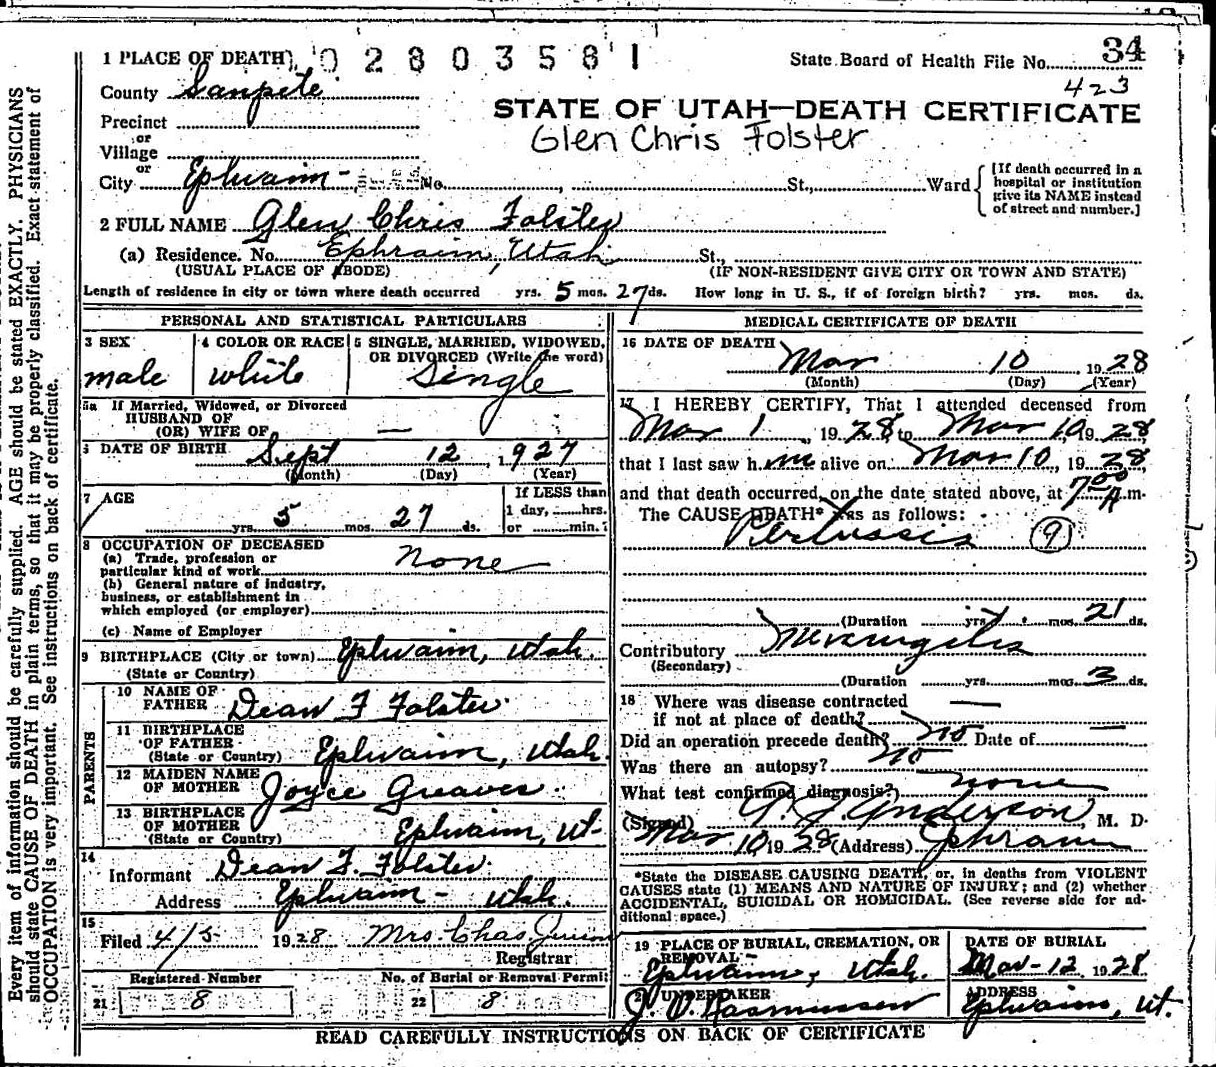 1 PLACE OF DEATH 02803581
State Board of Health File No. 34
423
County Sanpete
STATE OF UTAH—DEATH CERTIFICATE
Precinct
Glen Chris Folster
or
Village
or
City Ephraim No. , St., Ward
[If death occurred in a
hospital or institution
give its NAME instead
of street and number.]
2 FULL NAME Glen Chris Folster
(a) Residence. No. Ephraim, Utah St.,
(USUAL PLACE OF ABODE) (IF NON-RESIDENT GIVE CITY OR TOWN AND STATE)
Length of residence in city or town where death occurred yrs. 5 mos. 27 ds. How long in U. S., if of foreign birth? yrs. mos. ds.
PERSONAL AND STATISTICAL PARTICULARS
3 SEX
male
4 COLOR OR RACE
white
5 SINGLE, MARRIED, WIDOWED,
OR DIVORCED (Write the word)
Single
5a If Married, Widowed, or Divorced
HUSBAND OF
(OR) WIFE OF —
6 DATE OF BIRTH Sept 12, 1927
(Month) (Day) (Year)
7 AGE
yrs. 5 mos. 27 ds.
If LESS than
1 day, hrs.
or min.?
8 OCCUPATION OF DECEASED
(a) Trade, profession or
particular kind of work none
(b) General nature of industry,
business, or establishment in
which employed (or employer)
(c) Name of Employer
9 BIRTHPLACE (City or town) Ephraim, Utah.
(State or Country)
PARENTS
10 NAME OF
FATHER Dean F Folster
11 BIRTHPLACE
OF FATHER
(State or Country) Ephraim, Utah.
12 MAIDEN NAME
OF MOTHER Joyce Greaves
13 BIRTHPLACE
OF MOTHER
(State or Country) Ephraim, Ut-
14
Informant Dean F. Folster
Address Ephraim - Utah.
15
Filed 4/5 1928 Mrs. Chas
Registrar
Registered Number No. of Burial or Removal Permit
21 8 22 8
MEDICAL CERTIFICATE OF DEATH
16 DATE OF DEATH
Mar 10 1928
(Month) (Day) (Year)
17 I HEREBY CERTIFY, That I attended deceased from
Mar 1, 1928 to Mar 10 1928
that I last saw him alive on Mar 10, 1928,
and that death occurred, on the date stated above, at 7 00 A m.
The CAUSE DEATH* was as follows:
Pertussis 9
(Duration yrs. mos. 21 ds.
Contributory Meningitis
(Secondary)
(Duration yrs. mos. 3 ds.
18 Where was disease contracted
if not at place of death? —
Did an operation precede death? no Date of —
Was there an autopsy? no
What test confirmed diagnosis? none
(Signed) Anderson, M. D.
Mar 10 1928 (Address) Ephraim
*State the DISEASE CAUSING DEATH, or, in deaths from VIOLENT
CAUSES state (1) MEANS AND NATURE OF INJURY; and (2) whether
ACCIDENTAL, SUICIDAL OR HOMICIDAL. (See reverse side for ad-
ditional space.)
19 PLACE OF BURIAL, CREMATION, OR
REMOVAL
Ephraim, Utah.
DATE OF BURIAL
Mar-12, 1928
UNDERTAKER
J. V. Rasmussen
ADDRESS
Ephraim, Ut.
READ CAREFULLY INSTRUCTIONS ON BACK OF CERTIFICATE
Every item of information should be carefully supplied. AGE should be stated EXACTLY. PHYSICIANS
should state CAUSE OF DEATH in plain terms, so that it may be properly classified. Exact statement of
OCCUPATION is very important. See instructions on back of certificate.